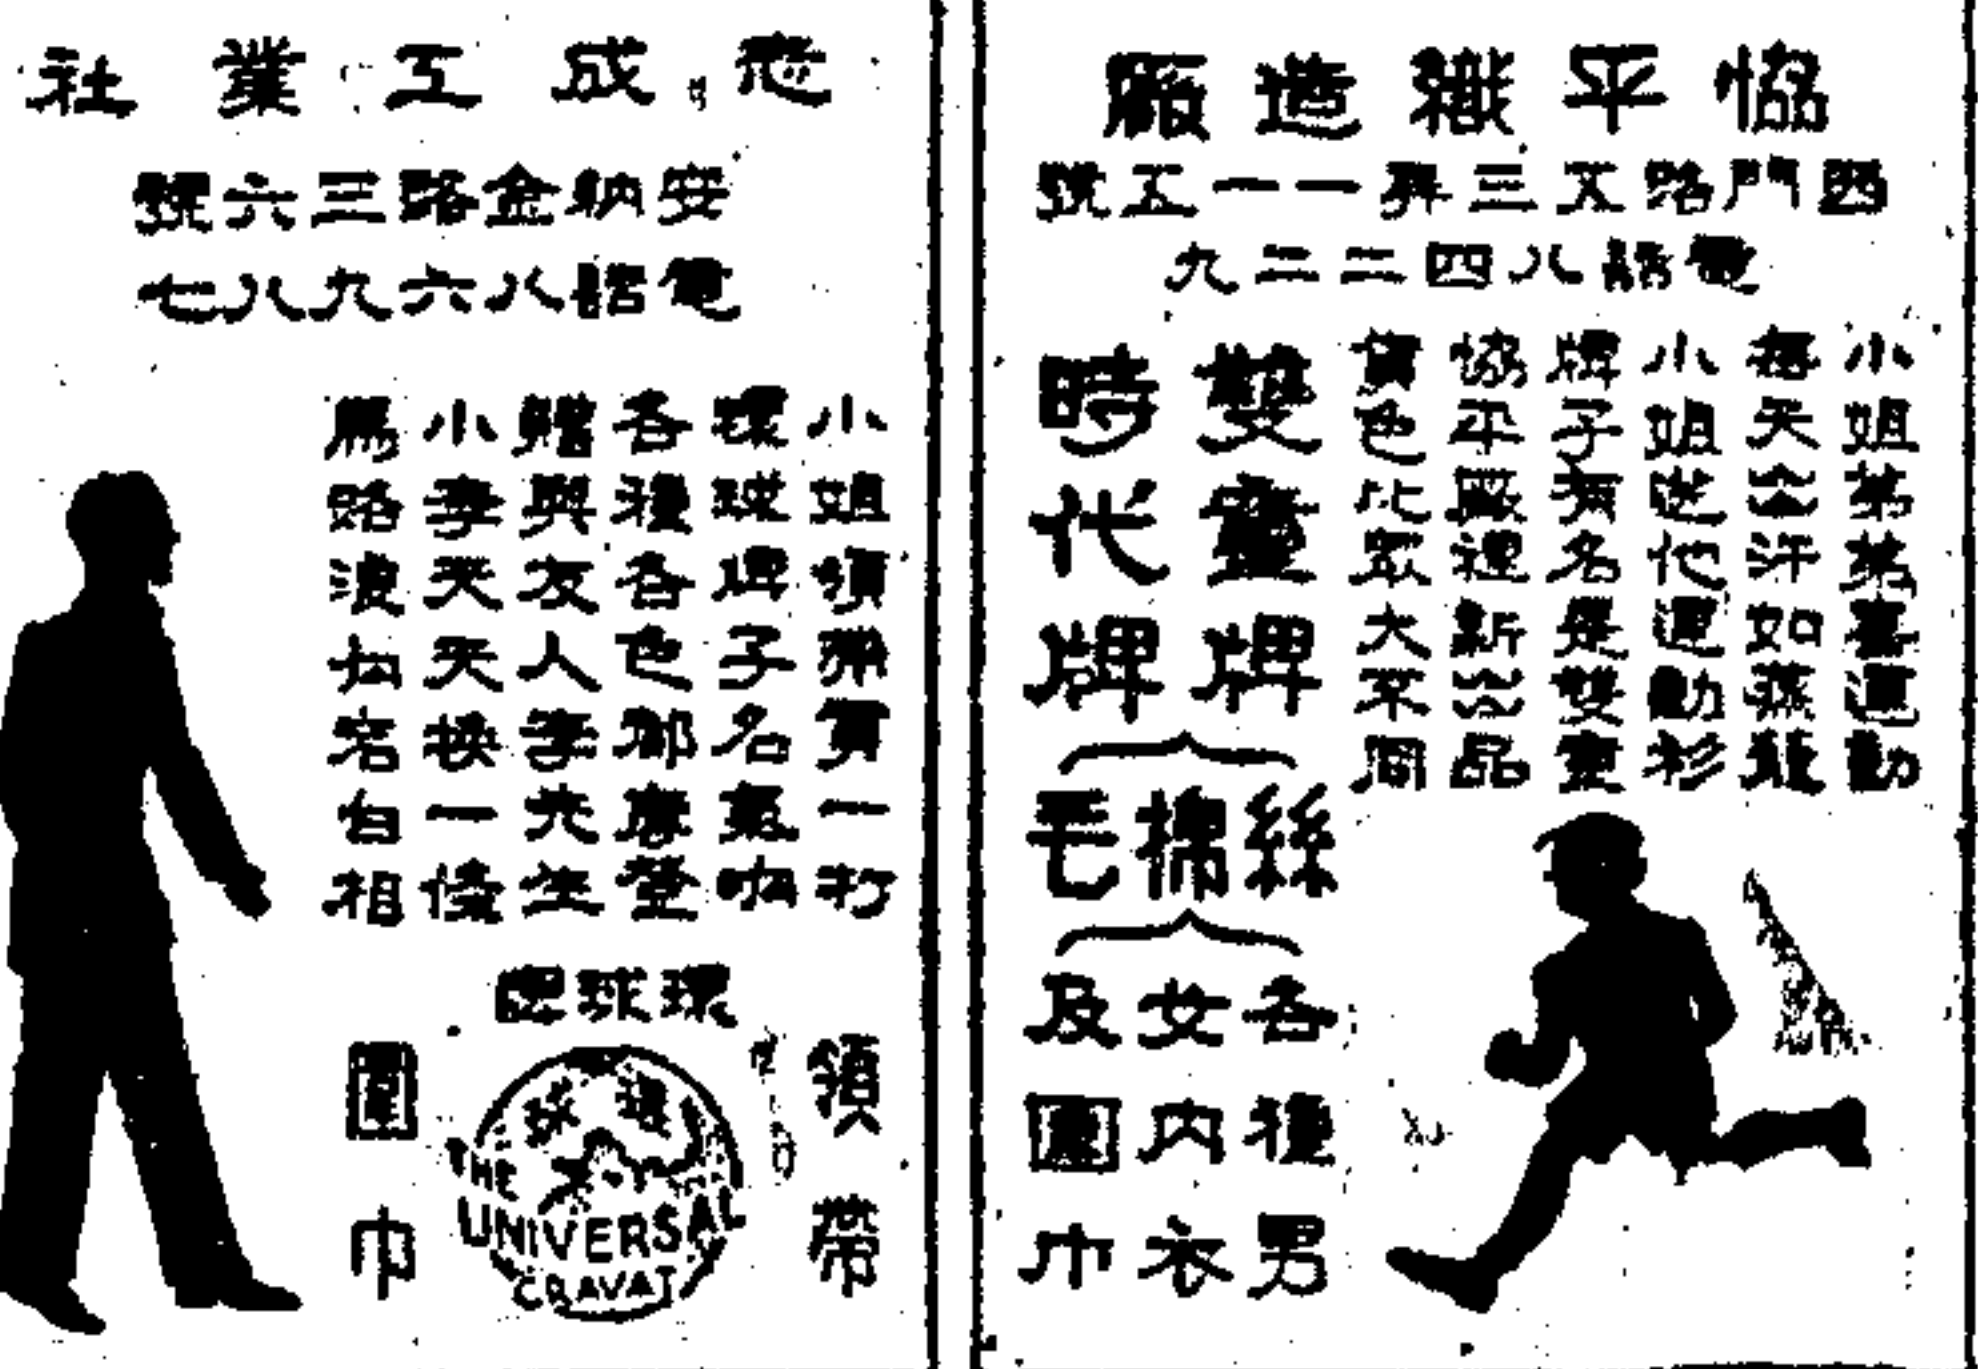 恊平織造廠
西門路五三弄一一五號
電話八四二二九
小姐弟弟喜運動
每天出汗如蒸籠
小姐送他運動衫
牌子有名是雙童
協平廠裡新出品
貨色比眾大不同
雙童牌
時代牌
絲棉毛
各種男
女內衣
及圍巾
成工業社
安納金路三六號
電話八六九八七
小姐領帶買一打
環球牌子名氣响
各種各色都摩登
贈與友人李先生
小李天天换一條
馬路浪向宕白相
環球牌
領帶
環球
THE
UNIVERSAL
CRAVAT
圍巾